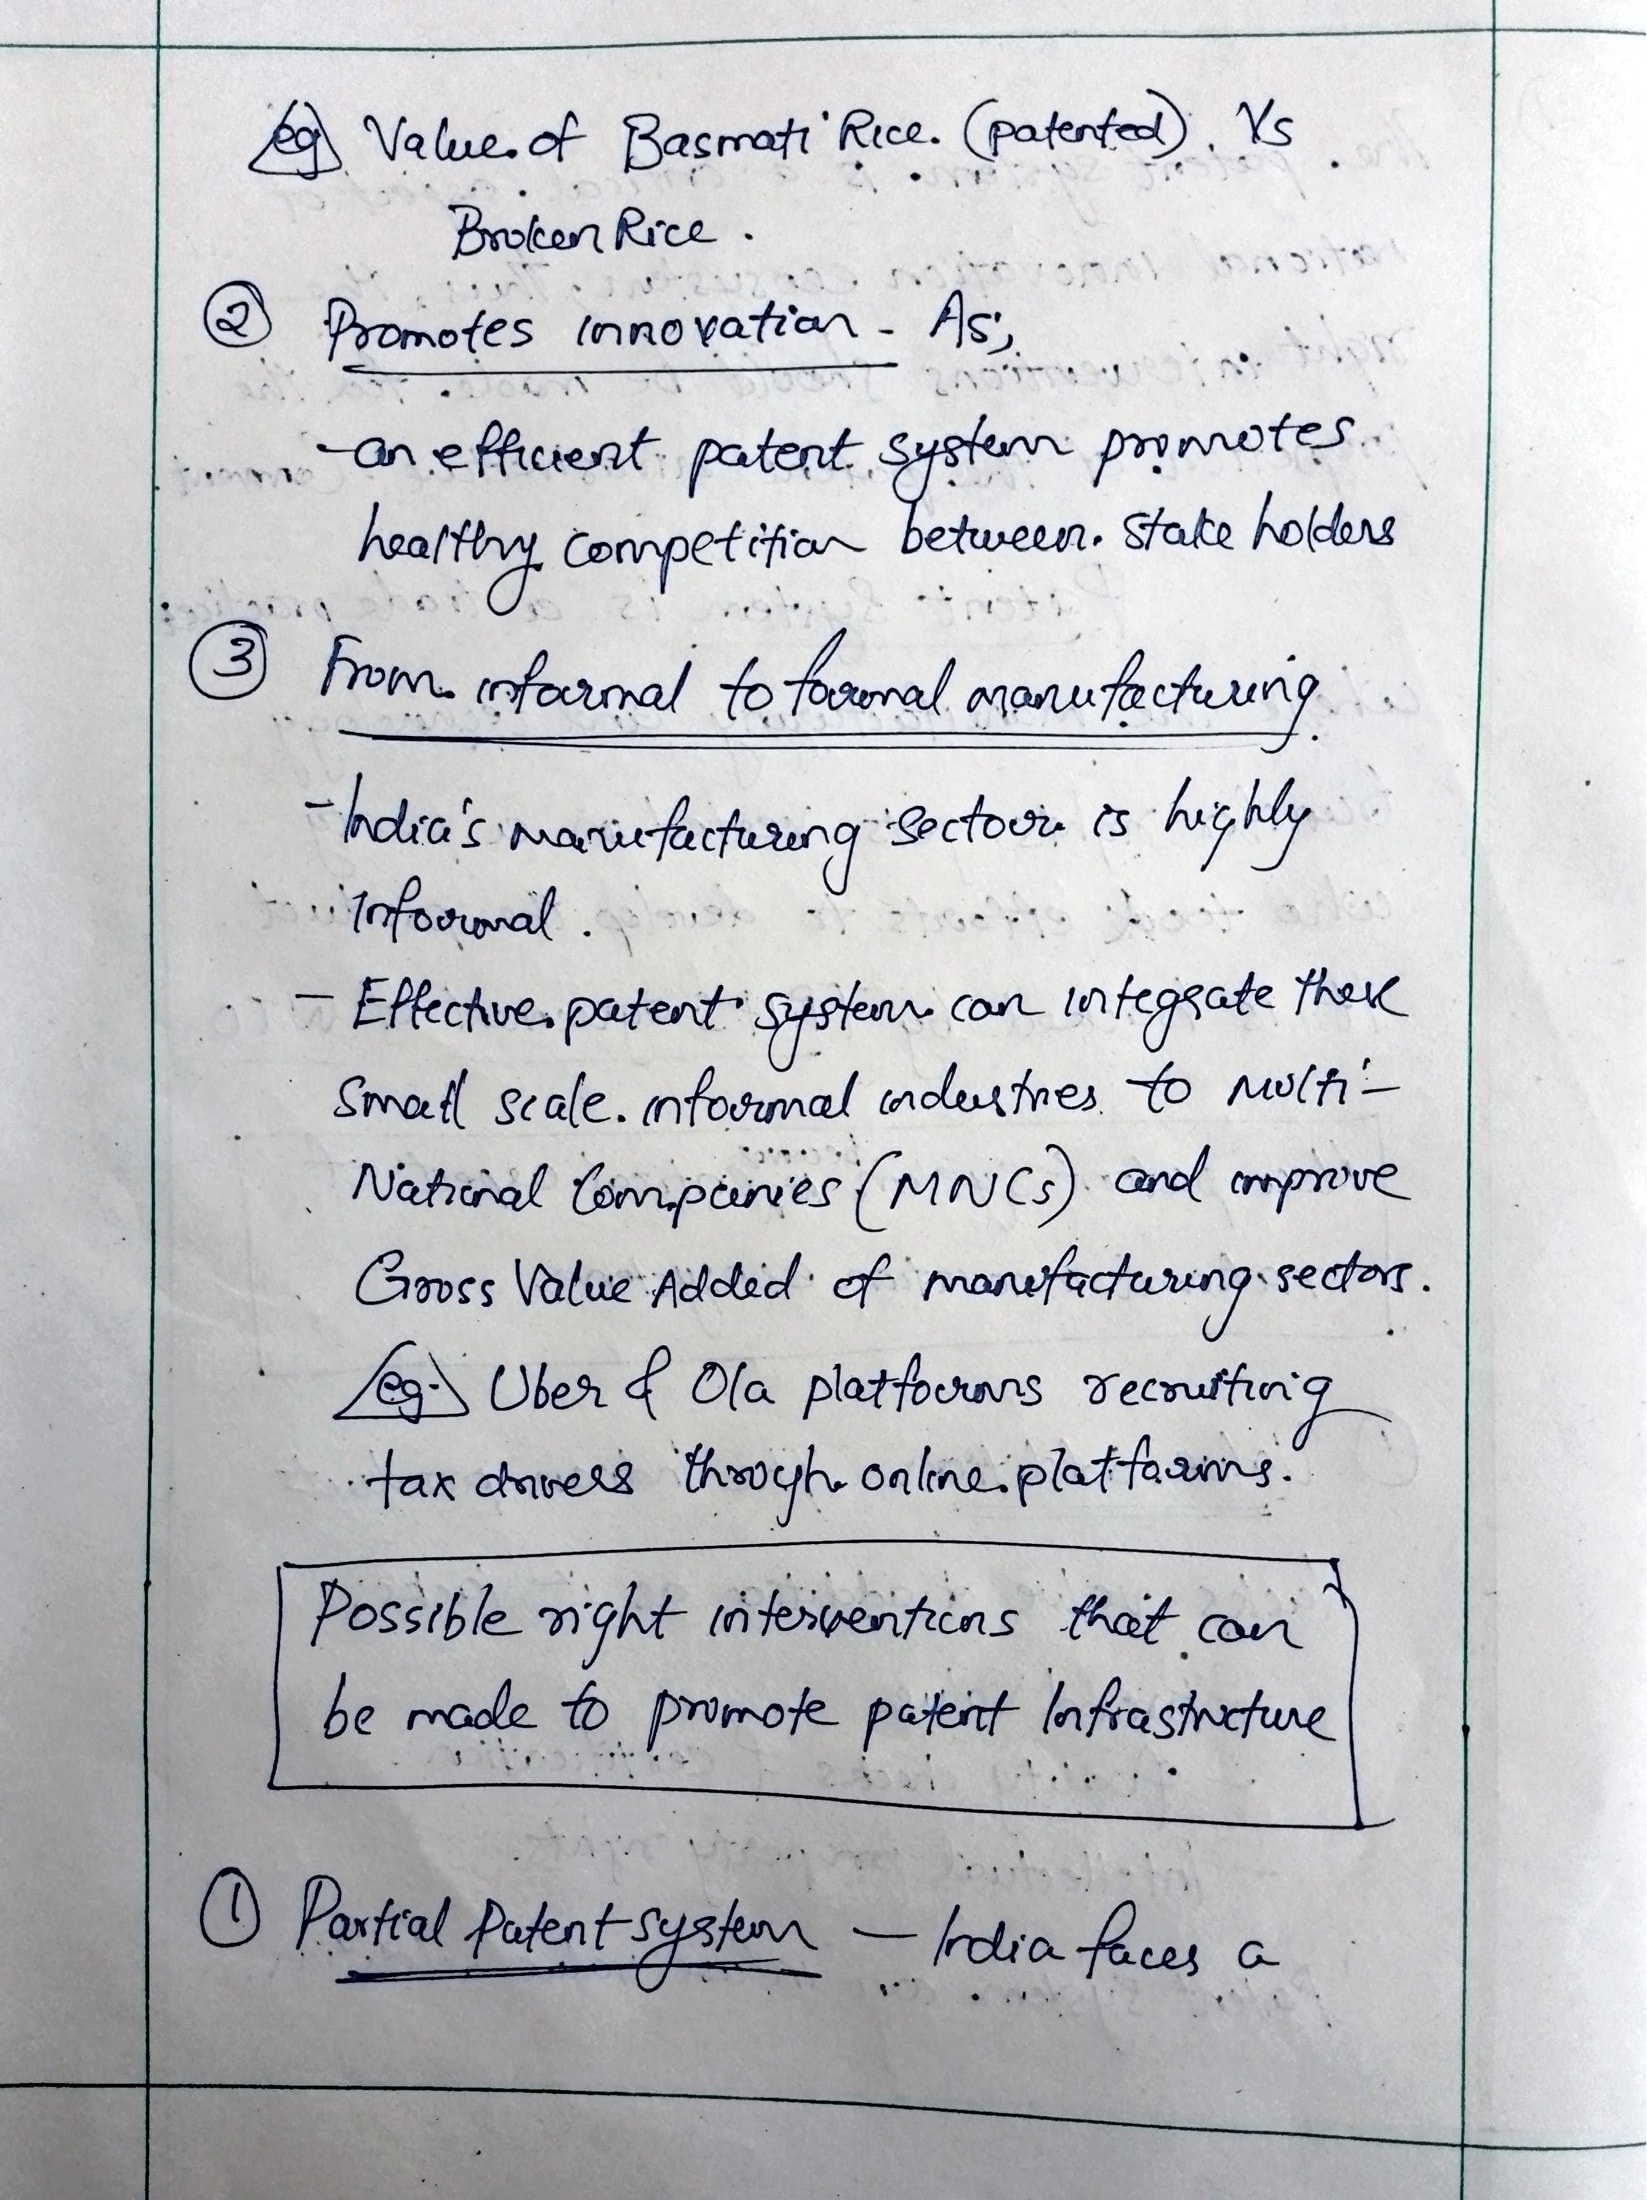 eg Value of Basmati Rice. (patented). Vs
Broken Rice.
② Promotes innovation - As;
- an efficient patent system promotes
healthy competition between stake holders
③ From informal to formal manufacturing
- India's manufacturing sector is highly
Informal.
- Effective patent system can integrate these
small scale informal industries to Multi-
National Companies (MNCs) and improve
Gross Value Added of manufacturing sectors.
eg. Uber & Ola platforms recruiting
tax drivers through online platforms.
Possible right interventions that can
be made to promote patent Infrastructure
① Partial Patent system - India faces a